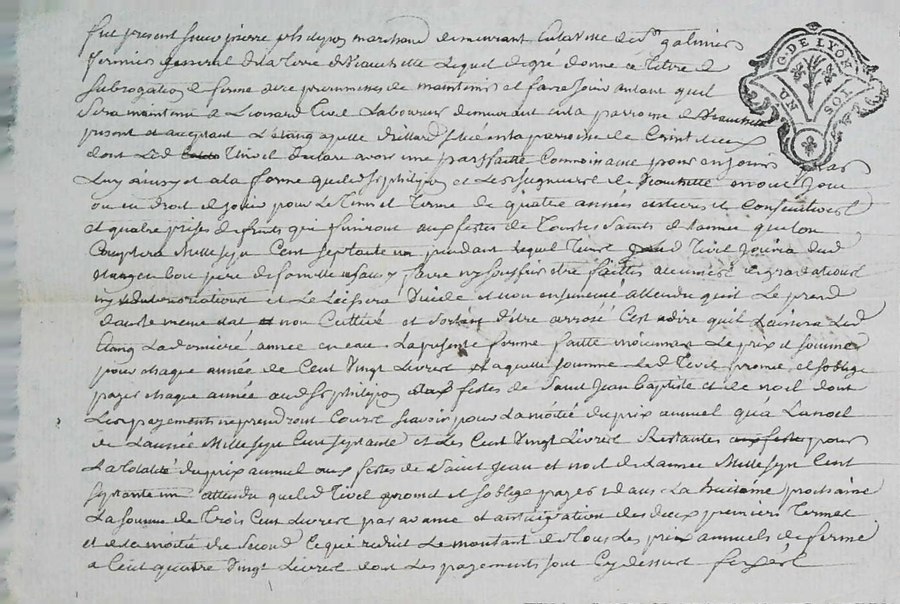 fut present sieur pierre philipon marchand demeurant en la ville de St galmier
fermier general de la terre de Veauchette lequel de gré donne a titre de
subrogation de ferme avec promesse de maintenir et faire jouir autant quil
sera maintenu a Leonard Tivel Laboureur demeurant en la parroisse de Veauchette
present et acceptant L'étang appellé situé en la parroisse de
dont Led Tivel declare avoir une parfaitte Connoissance pour en jouir par
Luy ainsy et a la forme que led Sr philipon et Les seigneurs de Veauchette en ont joui
ou eu droit de jouir pour Le tems et terme de quatre années entieres et Consecutives
et quatre prises de fruits qui finiront aux festes de Toussaints de Lannée que lon
Comptera Mille sept Cent septante un pendant lequel tems Led Tivel jouira dud
étang en bon pere de famille sans y faire ny souffrir etre faittes aucunes degradations
ny deteriorations et Le Laissera Vuide et non ensemencé attendu quil Le prend
dans le meme etat non Cultivé et d'etre arrosé Cest adire quil Laissera Led
étang La derniere année en eau. La presente ferme faitte moienant Le prix et somme
pour chaque année de Cent Vingt Livres laquelle somme Led Tivel promet et soblige
payer chaque année aud Sr philipon aux festes de Saint Jean Baptiste et de noel dont
Les payements ne prendront Cours scavoir pour La moitié du prix annuel qua La noel
de Lannée Mille sept Cent septante et Les Cent Vingt Livres Restantes pour
La totalité du prix annuel aux festes de Saint Jean et noel de Lannée Mille sept Cent
septante un attendu que led Tivel promet et soblige payer dans La huitaine prochaine
La somme de Trois Cent Livres par avance et anticipation des deux premiers Termes
et de la moitié du second Ce qui reduit Le montant de tous Les prix annuels de ferme
a Cent quatre Vingt Livres dont Les payements sont Cy dessus fixés
G. DE LYON
UN SOL